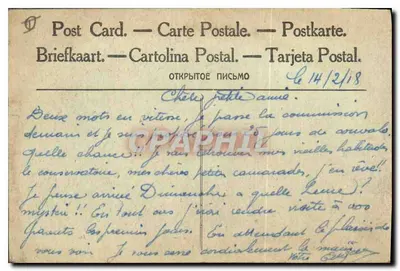 Post Card. — Carte Postale. — Postkarte.
Briefkaart. — Cartolina Postal. — Tarjeta Postal.
ОТКРЫТОЕ ПИСЬМО
le 14/2/18
Chère petite amie.
Deux mots en vitesse, je passe la commission
demain et je jours de convale
quelle chance!! Je vais retrouver mes vieilles habitudes
le conservatoire, mes chères petites camarades, j'en rêve!!
Je pense arrivé Dimanche a quelle heure?
mystère!! En tout cas j'irai rendre visite à vos
parents les premiers jours. En attendant le plaisir de
vous voir, je vous serre cordialement la main
Votre
CPArama